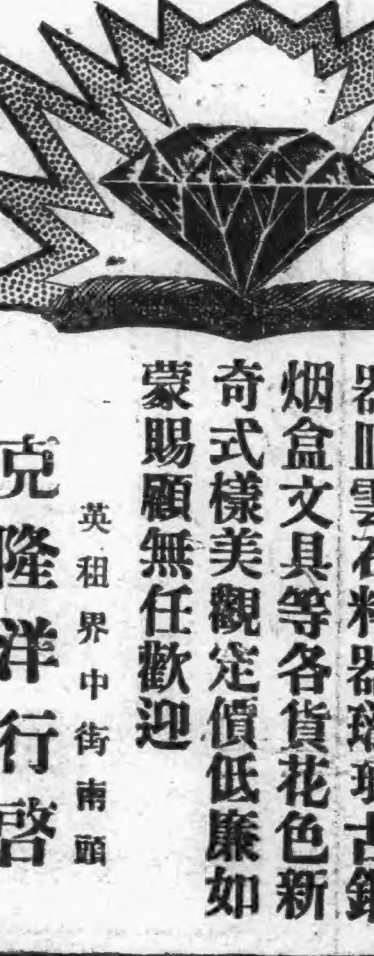 器皿雲石料器古
烟盒文具等各貨花色新
奇式樣美觀定價低廉如
蒙賜顧無任歡迎
英租界中街南頭
克隆洋行啓